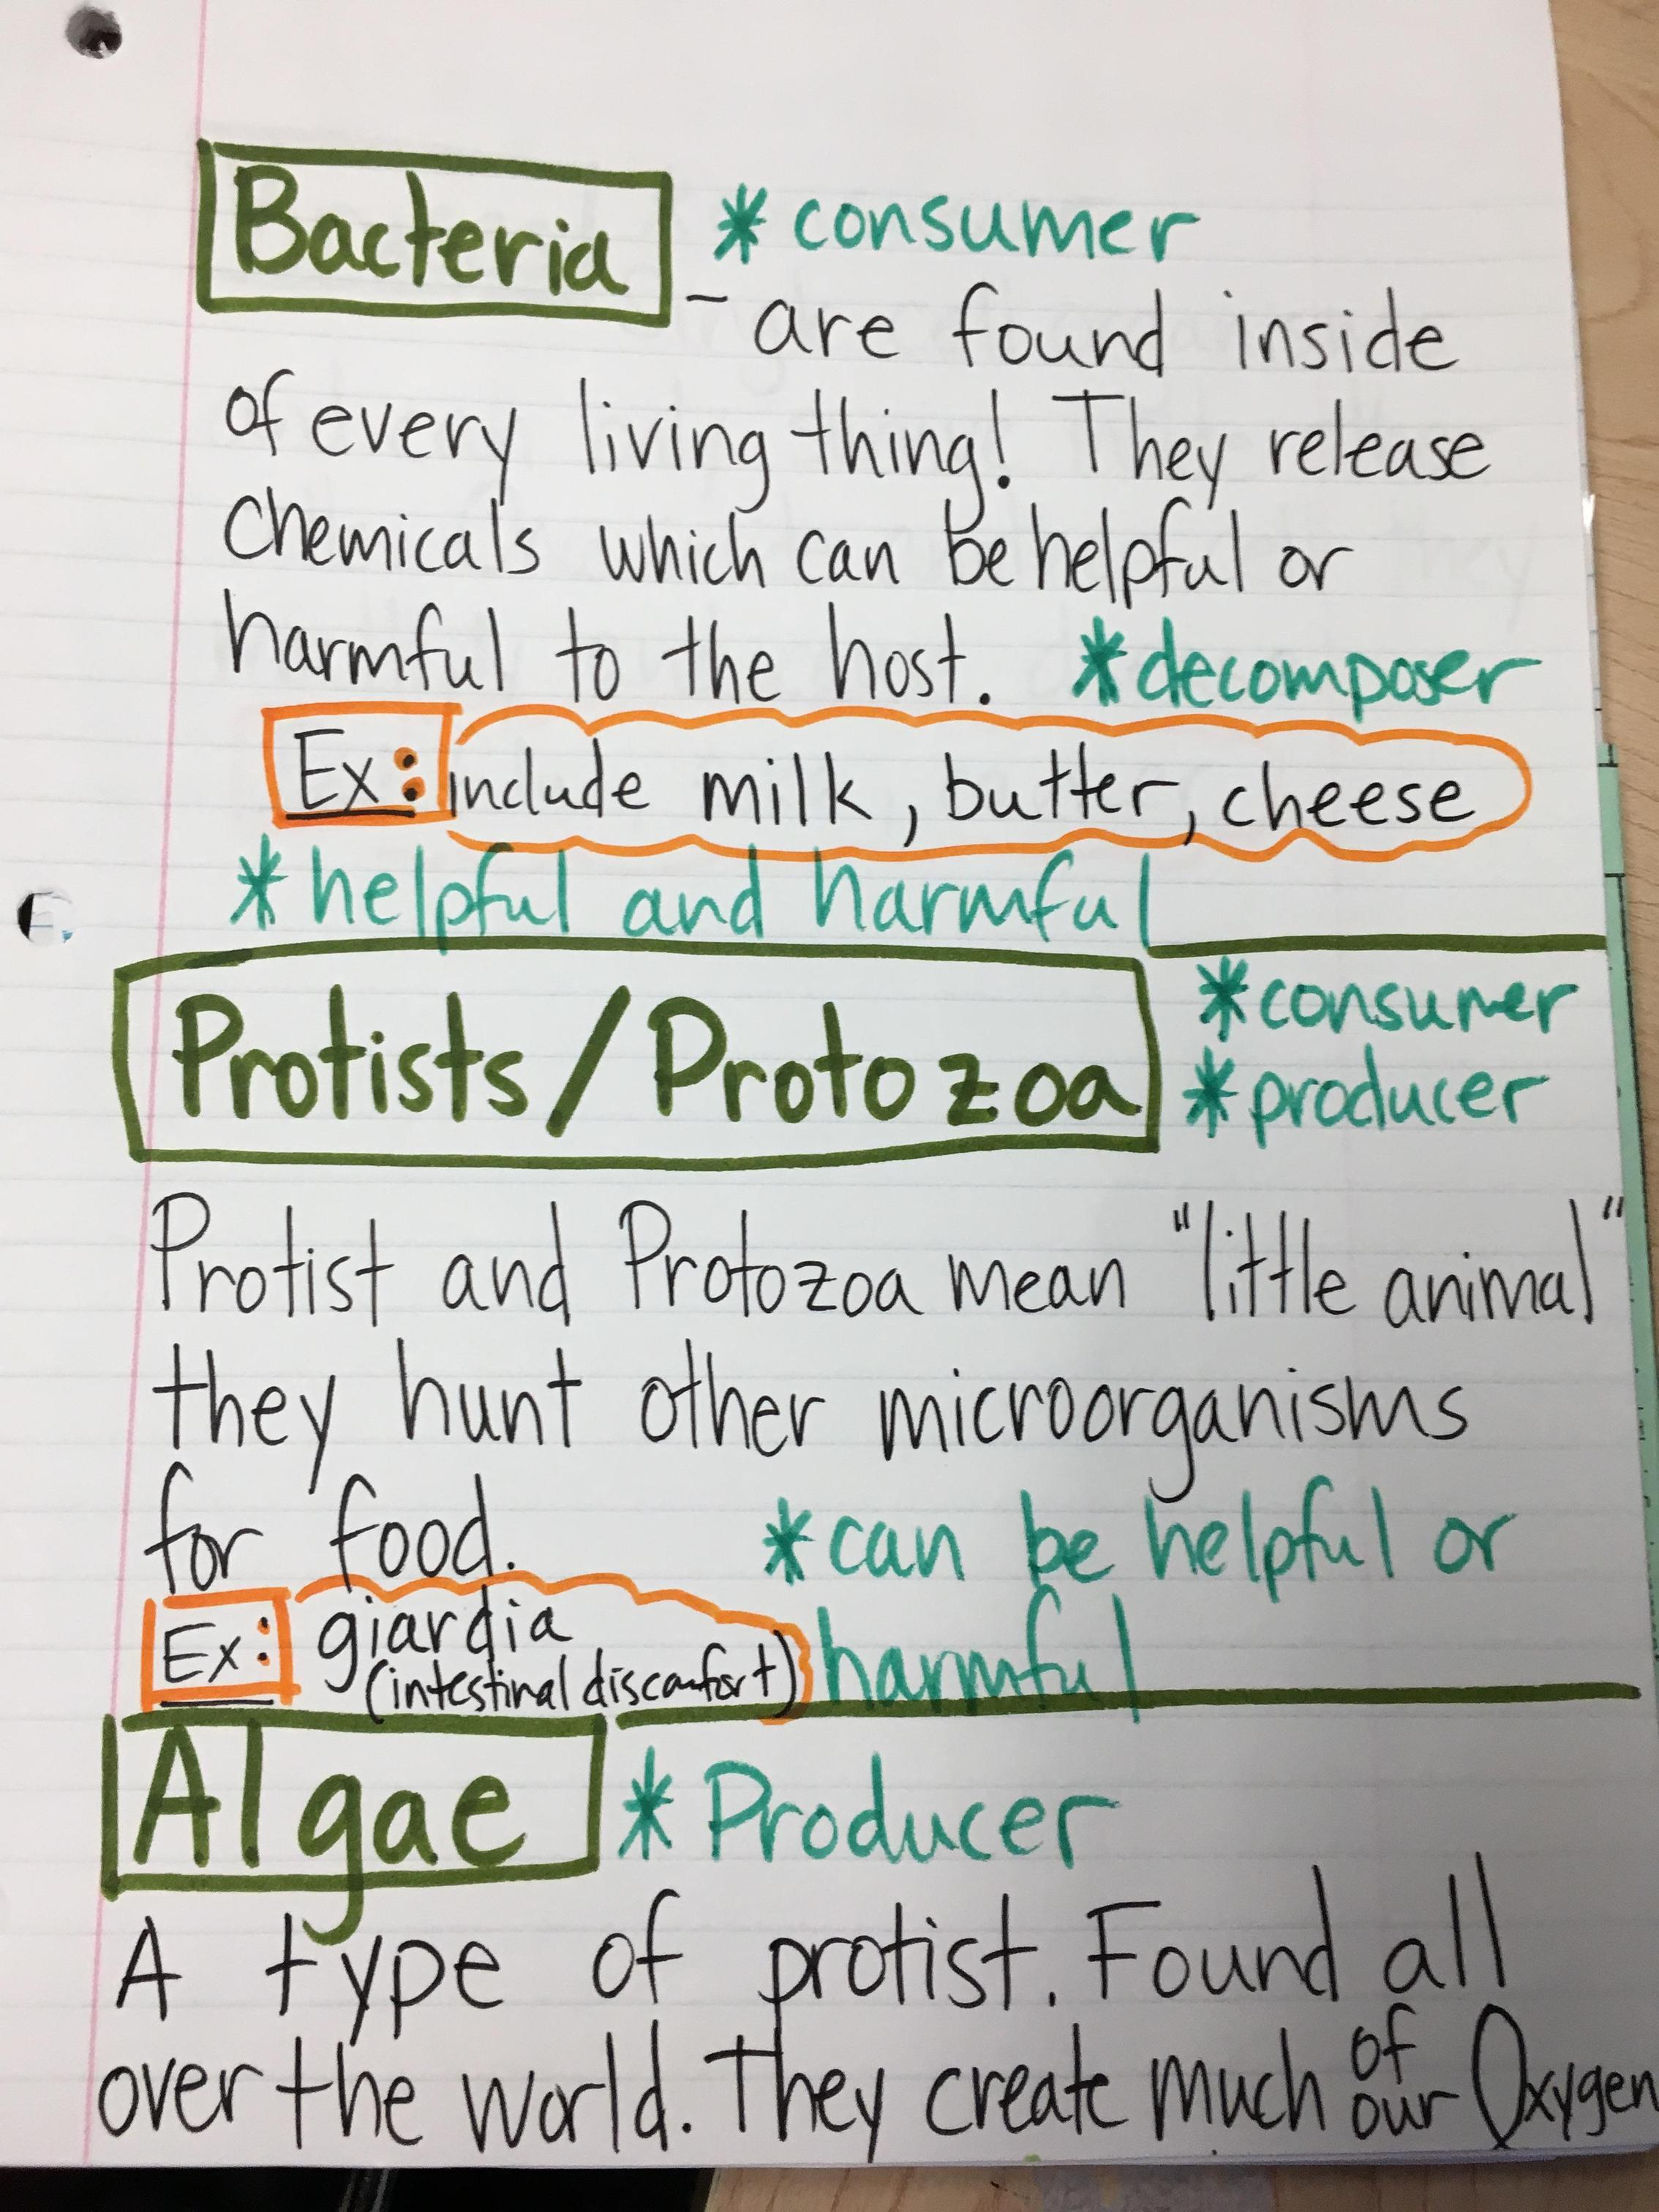 Bacteria * consumer
- are found inside
of every living thing! They release
chemicals which can be helpful or
harmful to the host. *decomposer
Ex: include milk, butter, cheese
* helpful and harmful
Protists/Protozoa *consumer
*producer
Protist and Protozoa mean "little animal"
they hunt other microorganisms
for food. *can be helpful or
harmful
Ex: giardia
(intestinal discomfort)
Algae * Producer
A type of protist. Found all
over the world. They create much of our Oxygen